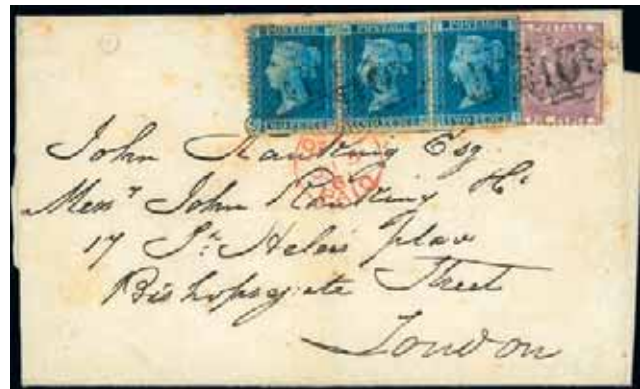 POSTAGE POSTAGE POSTAGE POSTAGE
TWO PENCE TWO PENCE TWO PENCE
John Ranking Esq
Mess.rs John Ranking
17 St. Helens place
Bishopsgate Street
London
PAID